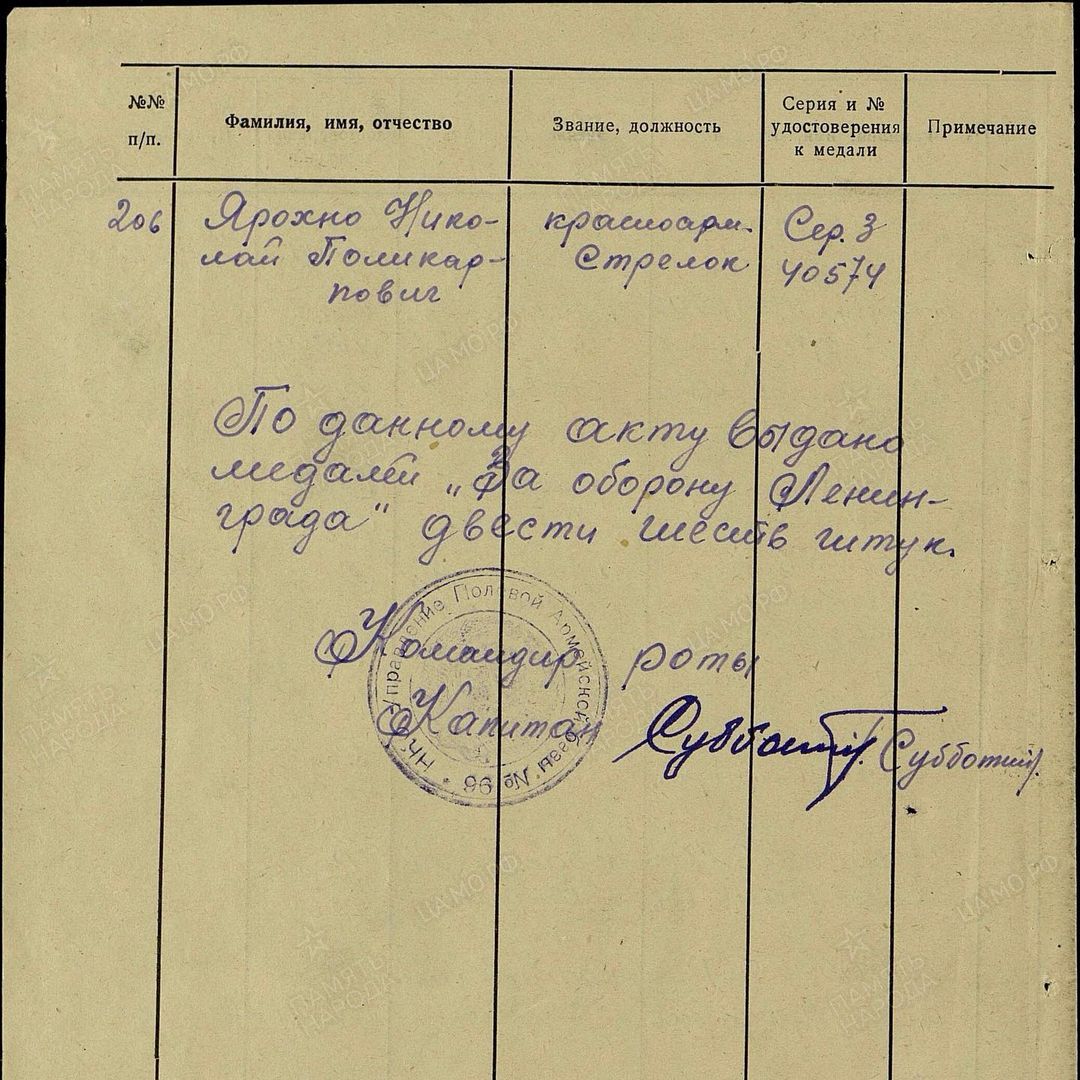 №№ п/п.
Фамилия, имя, отчество
Звание, должность
Серия и № удостоверения к медали
Примечание
206
Ярохно Нико-
лай Поликар-
пович
красноарм.
Стрелок
Сер. З
40574
По данному акту выдано
медалей „За оборону Ленин-
града“ двести шесть штук.
Командир роты
Капитан Субботин
Управление Полевой Армейской базы № 96
НКО
ЦАМО РФ
ПАМЯТЬ НАРОДА